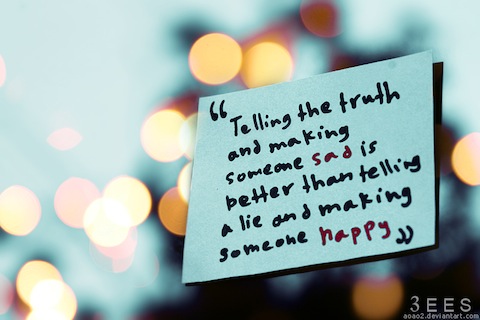 “Telling the truth
and making
someone sad is
better than telling
a lie and making
someone happy”
3EES
aoao2.deviantart.com